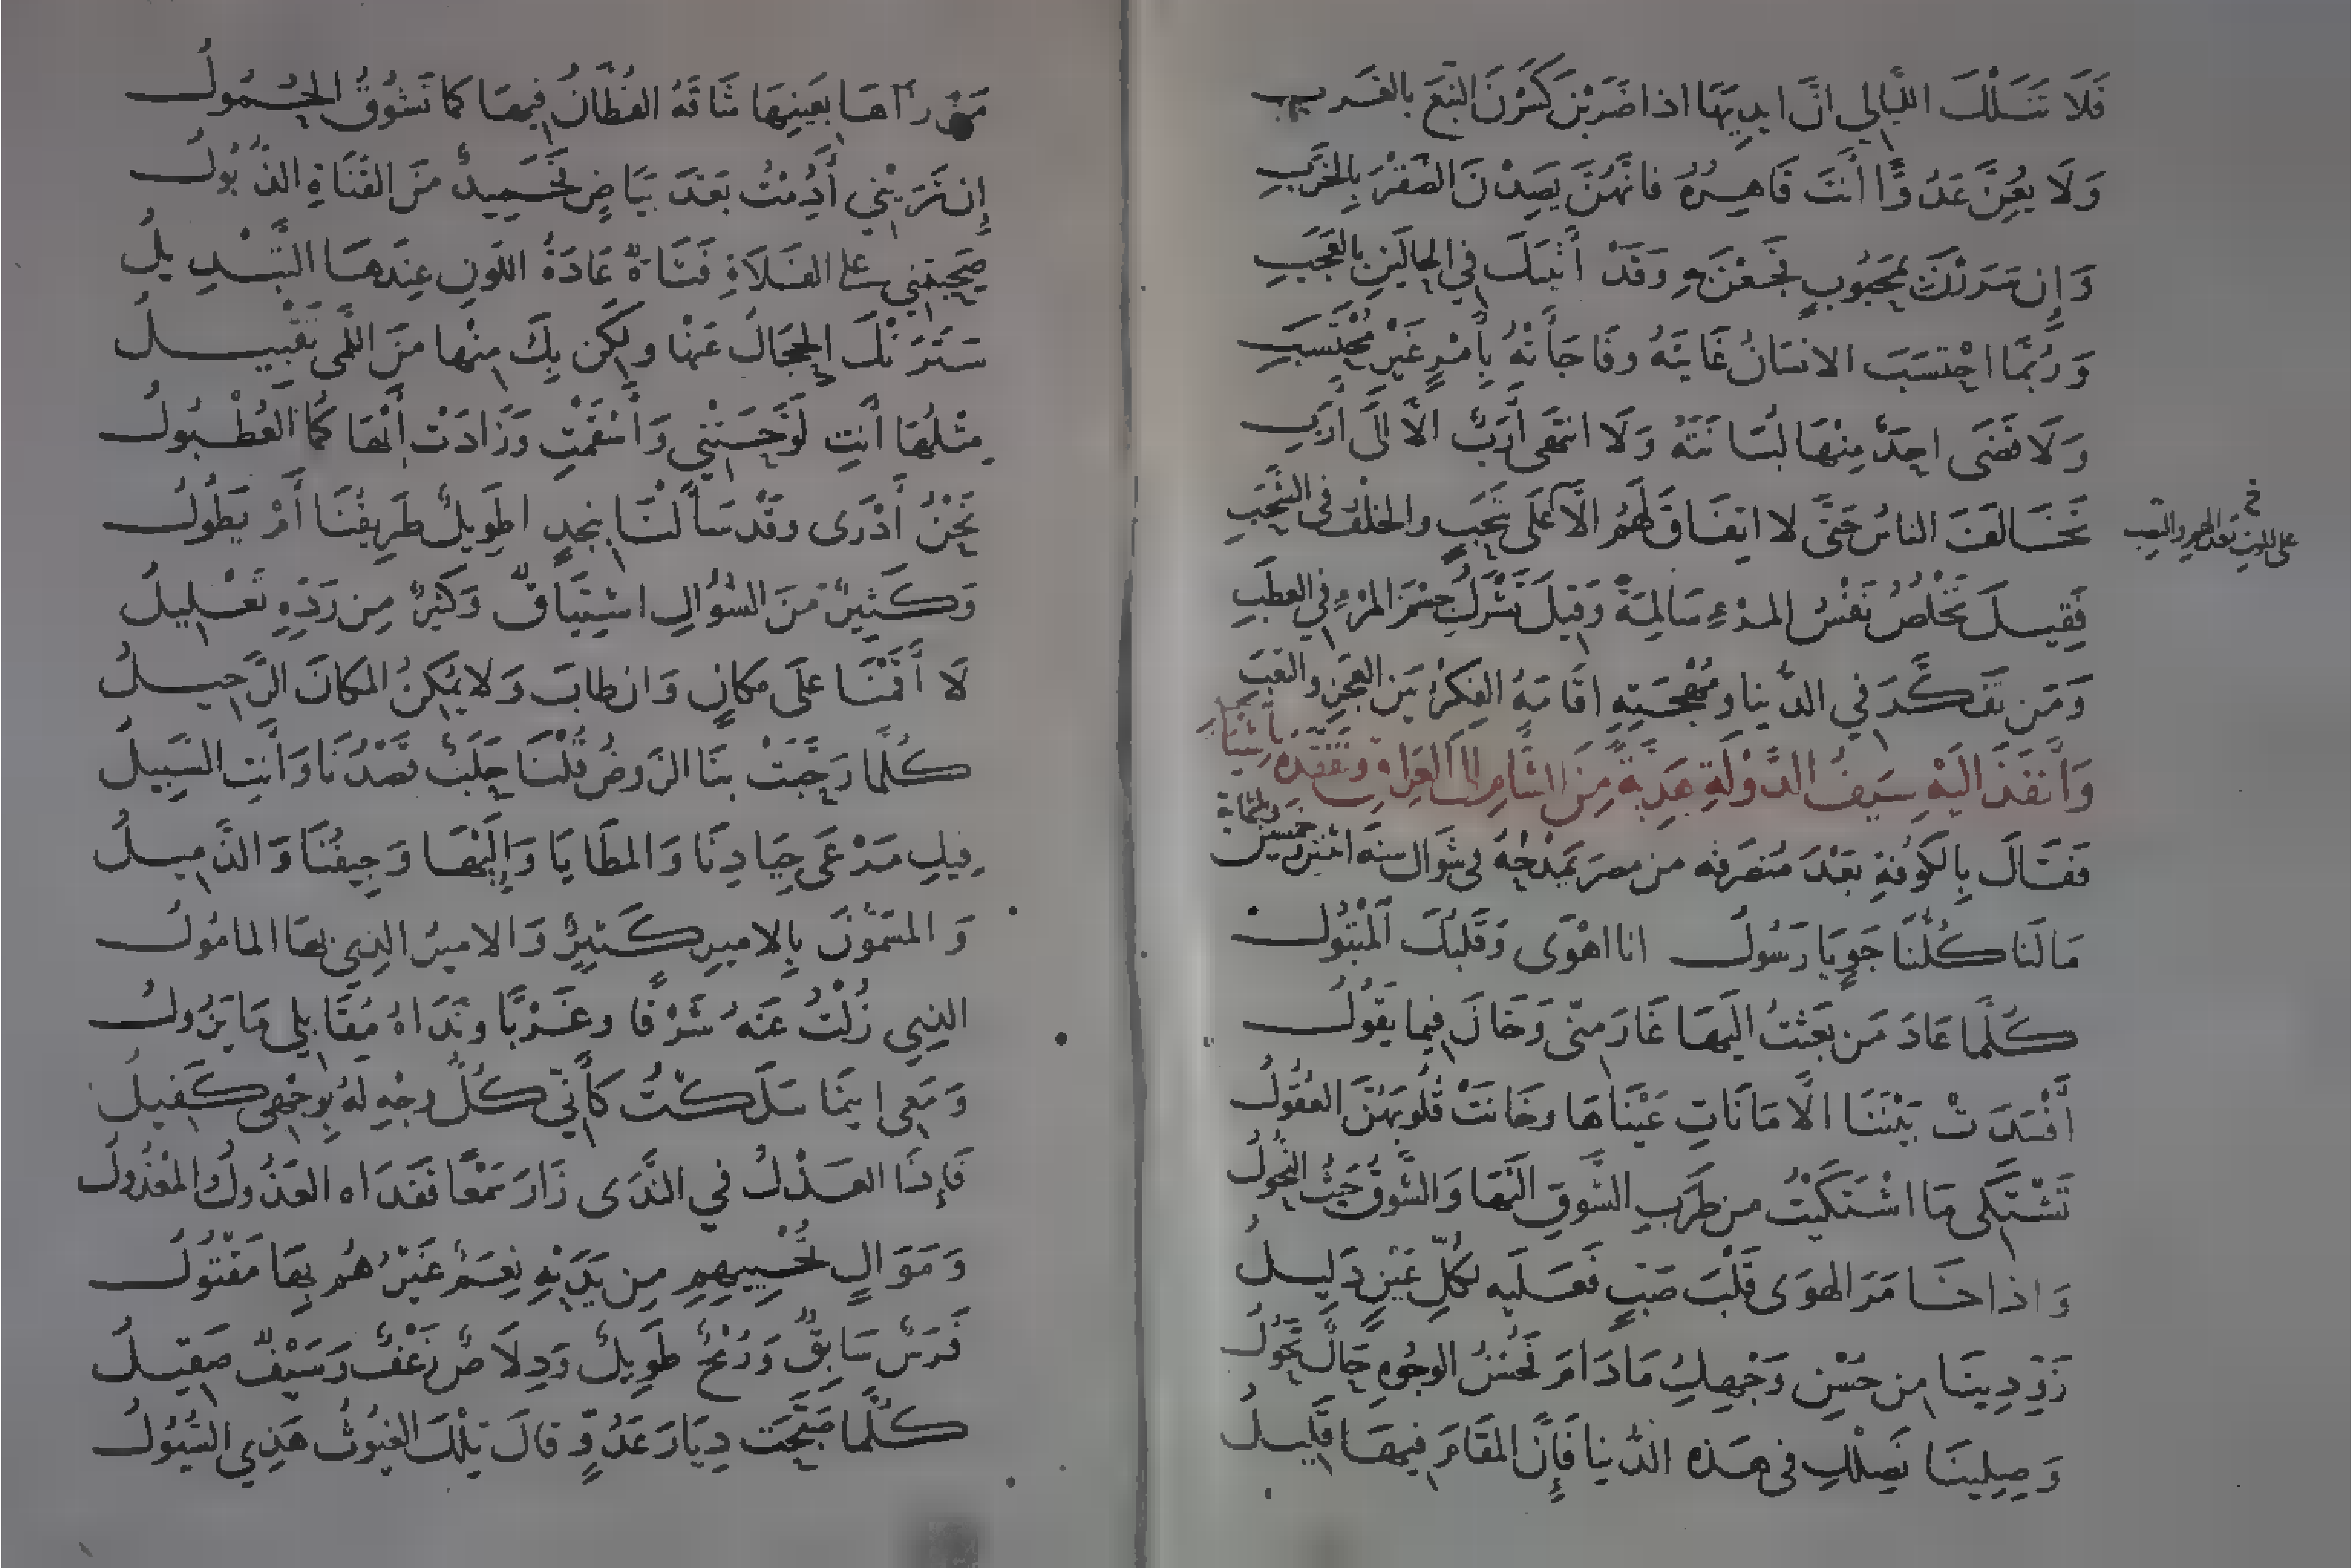 فَلَا تَنَلْكَ اللَّيَالِي انَّ ايدِيَهَا اذا ضَرَبْنَ كَسَرْنَ النَّبْعَ بالغَرَبِ
وَلَا يُعِنَّ عَدُوًّا أَنْتَ قَاهِرُهُ فانَّهُنَّ يَصِدْنَ الصَّقْرَ بِالخَرَبِ
وَإِن سَرَرْنَكَ بمَحْبُوبٍ فَجَعْنَ بِهِ وَقَدْ أَتَيْنَكَ فِي الحالَيْنِ بالعَجَبِ
وَرُبَّمَا احْتَسَبَ الانسَانُ غَايَتَهُ وفَاجَأَتْهُ بِأَمْرٍ غَيْرِ مُحْتَسَبِ
وَلَا قَضَى احَدٌ مِنْهَا لُبَانَتَهُ وَلَا انتَهَى أَرَبٌ الَّا الَى أَرَبِ
تَخَالَفَ الناسُ حَتَّى لا اتِفَاقَ لَهُمُ الَّا عَلَى شَجَبٍ والخلْفُ فى الشَّجَبِ
فَقِيلَ تَخْلُصُ نَفْسُ المَرْءِ سَالِمَةً وَقِيلَ تَشْرَكُ جِسْمَ المَرْءِ فِي العَطَبِ
وَمَن تَفَكَّرَ فِي الدُّنيا ومُهْجَتِهِ اقَامَهُ الفِكْرُ بَيْنَ العَجْزِ والتَّعَبِ
وَأَنفَذَ الَيْهِ سَيفُ الدَّوْلَةِ هَدِيَّةً مِنَ الشَّامِ الَى العِرَاقِ
فَقَالَ بِالكُوفَةِ بَعْدَ مُنصَرَفه من مصرَ يَمْدَحُهُ فى شوال سنه اثنتين وخمسين وثلثماية
مَا لَنَا كُلُّنَا جَوٍ يَا رَسُولُ انا اهْوَى وَقَلبُكَ المَتْبُولُ
كُلَّمَا عَادَ مَن بَعَثْتُ الَيْهَا غَارَ مِنّى وَخَانَ فِيما يَقُولُ
أَفْسَدَتْ بَيْنَنَا الأمَانَاتِ عَيْنَاهَا وخَانَتْ قُلُوبَهُنَّ العُقُولُ
تَشْتَكِى مَا اشْتَكَيْتُ من طَرَبِ الشَّوقِ الَيْهَا وَالشَّوقُ حَيْثُ النُّحُولُ
وَاذا خَامَرَ الهوَى قَلْبَ صَبٍّ فَعَلَيه لكلِّ عَيْنٍ دَلِيلُ
زَوِّدِينَا مِن حُسْنِ وَجْهِكِ مَا دَامَ فَحُسْنُ الوجُوهِ حَالٌ تَحُولُ
وَصِلِينَا نَصِلْكِ فى هَذه الدُّنيا فَإِنَّ المَقَامَ فِيهَا قَلِيلُ
على اللوث بعد الهم والتعب
مَنْ رآهَا بعَيْنِهَا شَاقَهُ القُطَّانُ فِيهَا كما تَشُوقُ الحُمُولُ
إِن تَرَيْنِي أَدُمْتُ بَعْدَ بَيَاضٍ فَحَمِيدٌ مِنَ القَنَاةِ الذُّبُولُ
صَحِبَتْنِي على الفَلَاةِ فَتَاةٌ عَادَةُ اللَّونِ عِندَهَا التَّبْدِيلُ
سَتَرَتْكِ الحِجَالُ عَنْهَا ولكِن بِكِ مِنْهَا مِنَ اللَّمَى تَقْبِيلُ
مِثْلُهَا أَنْتِ لَوَّحَتْنِي وَأَسْقَمْتِ وَزَادَتْ أَبْهَا كُمَا العُطْبُولُ
نَحْنُ أَدْرَى وقَدْ سَأَلْنَا بِنَجدٍ اطَوِيلٌ طَرِيقُنَا أَمْ يَطُولُ
وَكَثِيرٌ مِنَ السُّؤَالِ اشتِيَاقٌ وَكَثِيرٌ مِن رَدِّهِ تَعْلِيلُ
لَا أَقَمْنَا عَلَى مَكَانٍ وَان طابَ وَلا يُمكِنُ المَكانَ الرَّحِيلُ
كُلَّمَا رَحَّبَتْ بنَا الرَّوضُ قُلْنَا حَلَبٌ قَصْدُنَا وَأَنْتِ السَّبِيلُ
فِيكِ مَرْعَى جِيَادِنَا وَالمَطَايَا وَإِلَيْهَا وَجِيفُنَا وَالذَّمِيلُ
وَالمُسَمَّوْنَ بِالامِيرِ كَثِيرٌ وَالامِيرُ الذِي بهَا المامُولُ
الذِي زُلْتُ عَنْهُ شَرْقًا وغَرْبًا ونَدَاهُ مُقَابِلِي مَا يَزُولُ
وَمَعِى ايْنَمَا سَلَكْتُ كَأَنِّي كُلُّ وجْهٍ لَهُ بِوَجْهِى كَفِيلُ
فَإِذَا العَذْلُ فِي النَّدَى زَارَ سَمْعًا فَفَدَاه العَذُولُ والمَعْذُولُ
وَمَوَالٍ تُحْيِيهِمِ مِن يَدَيْهِ نِعَمٌ غَيْرُهُم بِهَا مَقْتُولُ
فَرَسٌ سَابِقٌ وَرُمْحٌ طَوِيلٌ وَدِلَاصٌ زَغْفٌ وَسَيْفٌ صَقِيلُ
كُلَّمَا صَبَّحَتْ دِيَارَ عَدُوٍّ قالَ تِلْكَ الغُيُوثُ هَذِي السُّيُولُ